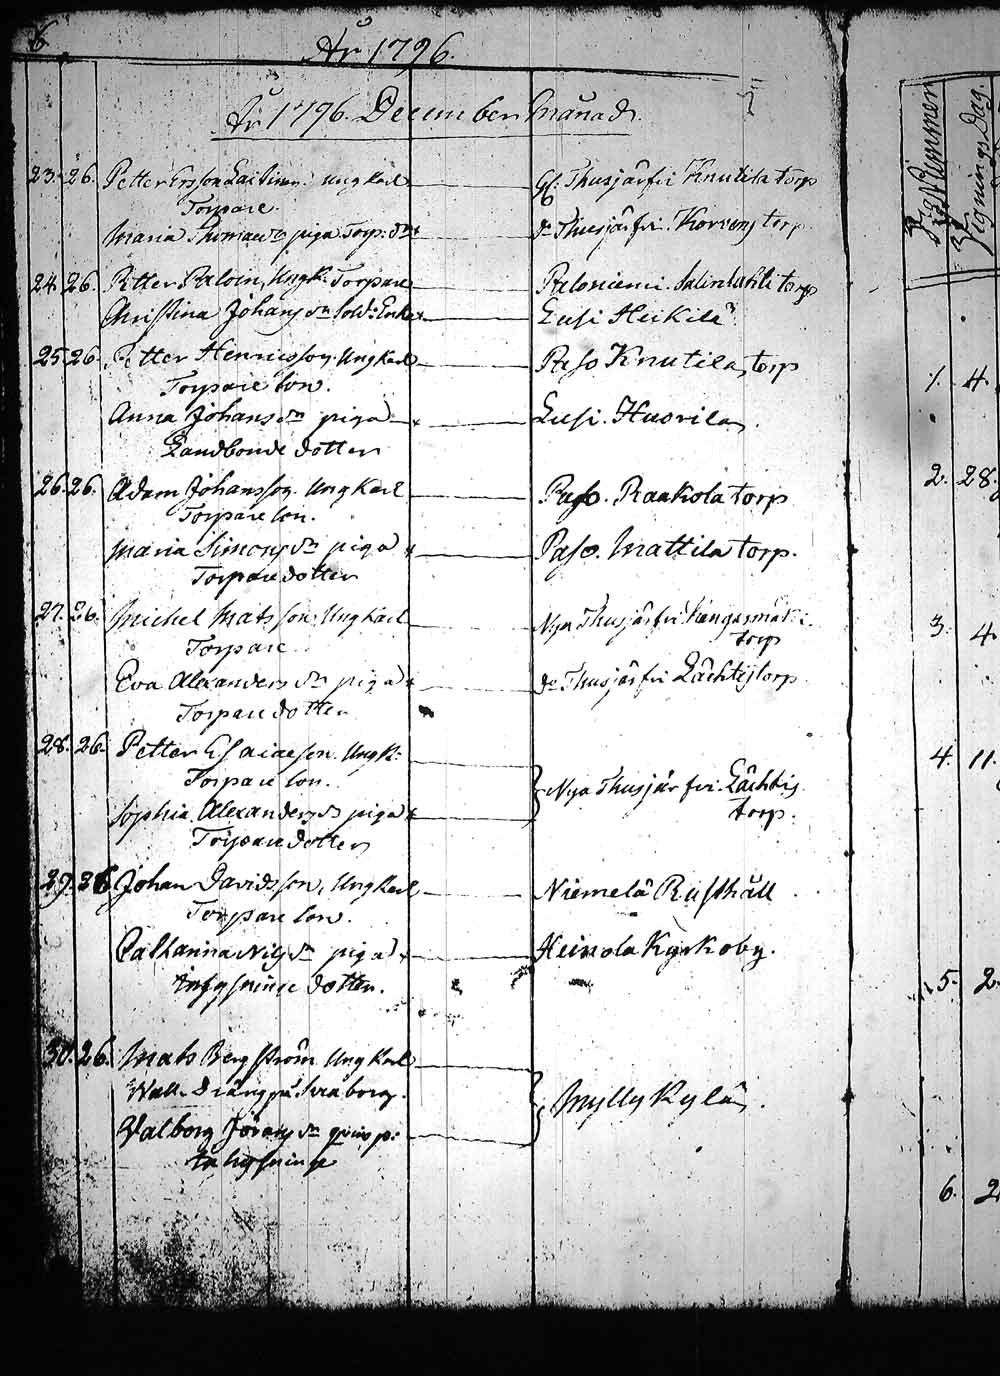 6
År 1796.
År 1796. December Månad.
23. 26. Petter Ersson Laitinen Ungkarl Gl: Thusjärfvi Knutila torp
Torpare.
Maria Thomaedr piga Torp: dr do Thusjärfvi. Korvens torp
24. 26. Petter Paloin, Ungk: Torpare Paloniemi Salinlahti torp
Christina Johansdr Sold: Enka Lusi Heikilä
25. 26. Petter Henricsson Ungkarl Paso Knutila torp
Torpare Son.
Anna Johansdr piga Lusi. Huovila.
Landbonde dotter
26. 26. Adam Johansson Ungkarl Paso. Raakola torp
Torpare Son.
Maria Simonsdr piga Paso. Mattila torp.
Torpare dotter
27. 26. Michel Matsson Ungkarl Nya Thusjärfvi
Torpare torp
Eva Alexandersdr piga do Thusjärfvi Lächtis torp
Torpare dotter
28. 26. Petter Esaiaeson Ungk:
Torpare Son. Nya Thusjärfvi Lächtis
Sophia Alexandersdr piga torp.
Torpare dotter
29. 26. Johan Davidsson, Ungkarl Niemelä Rusthåll
Torpare Son.
Catharina Nilsdr piga Heinola Kyrkoby.
Inhysninge dotter.
30. 26. Mats Bergström Ungkarl
Wall. Dräng på Sveaborg. Myllykylä.
Valborg Göransdr qvinsp:
Inhysninge
Zigningsdag.
1. 4.
2. 28.
3. 4.
4. 11.
5. 2
6. 2